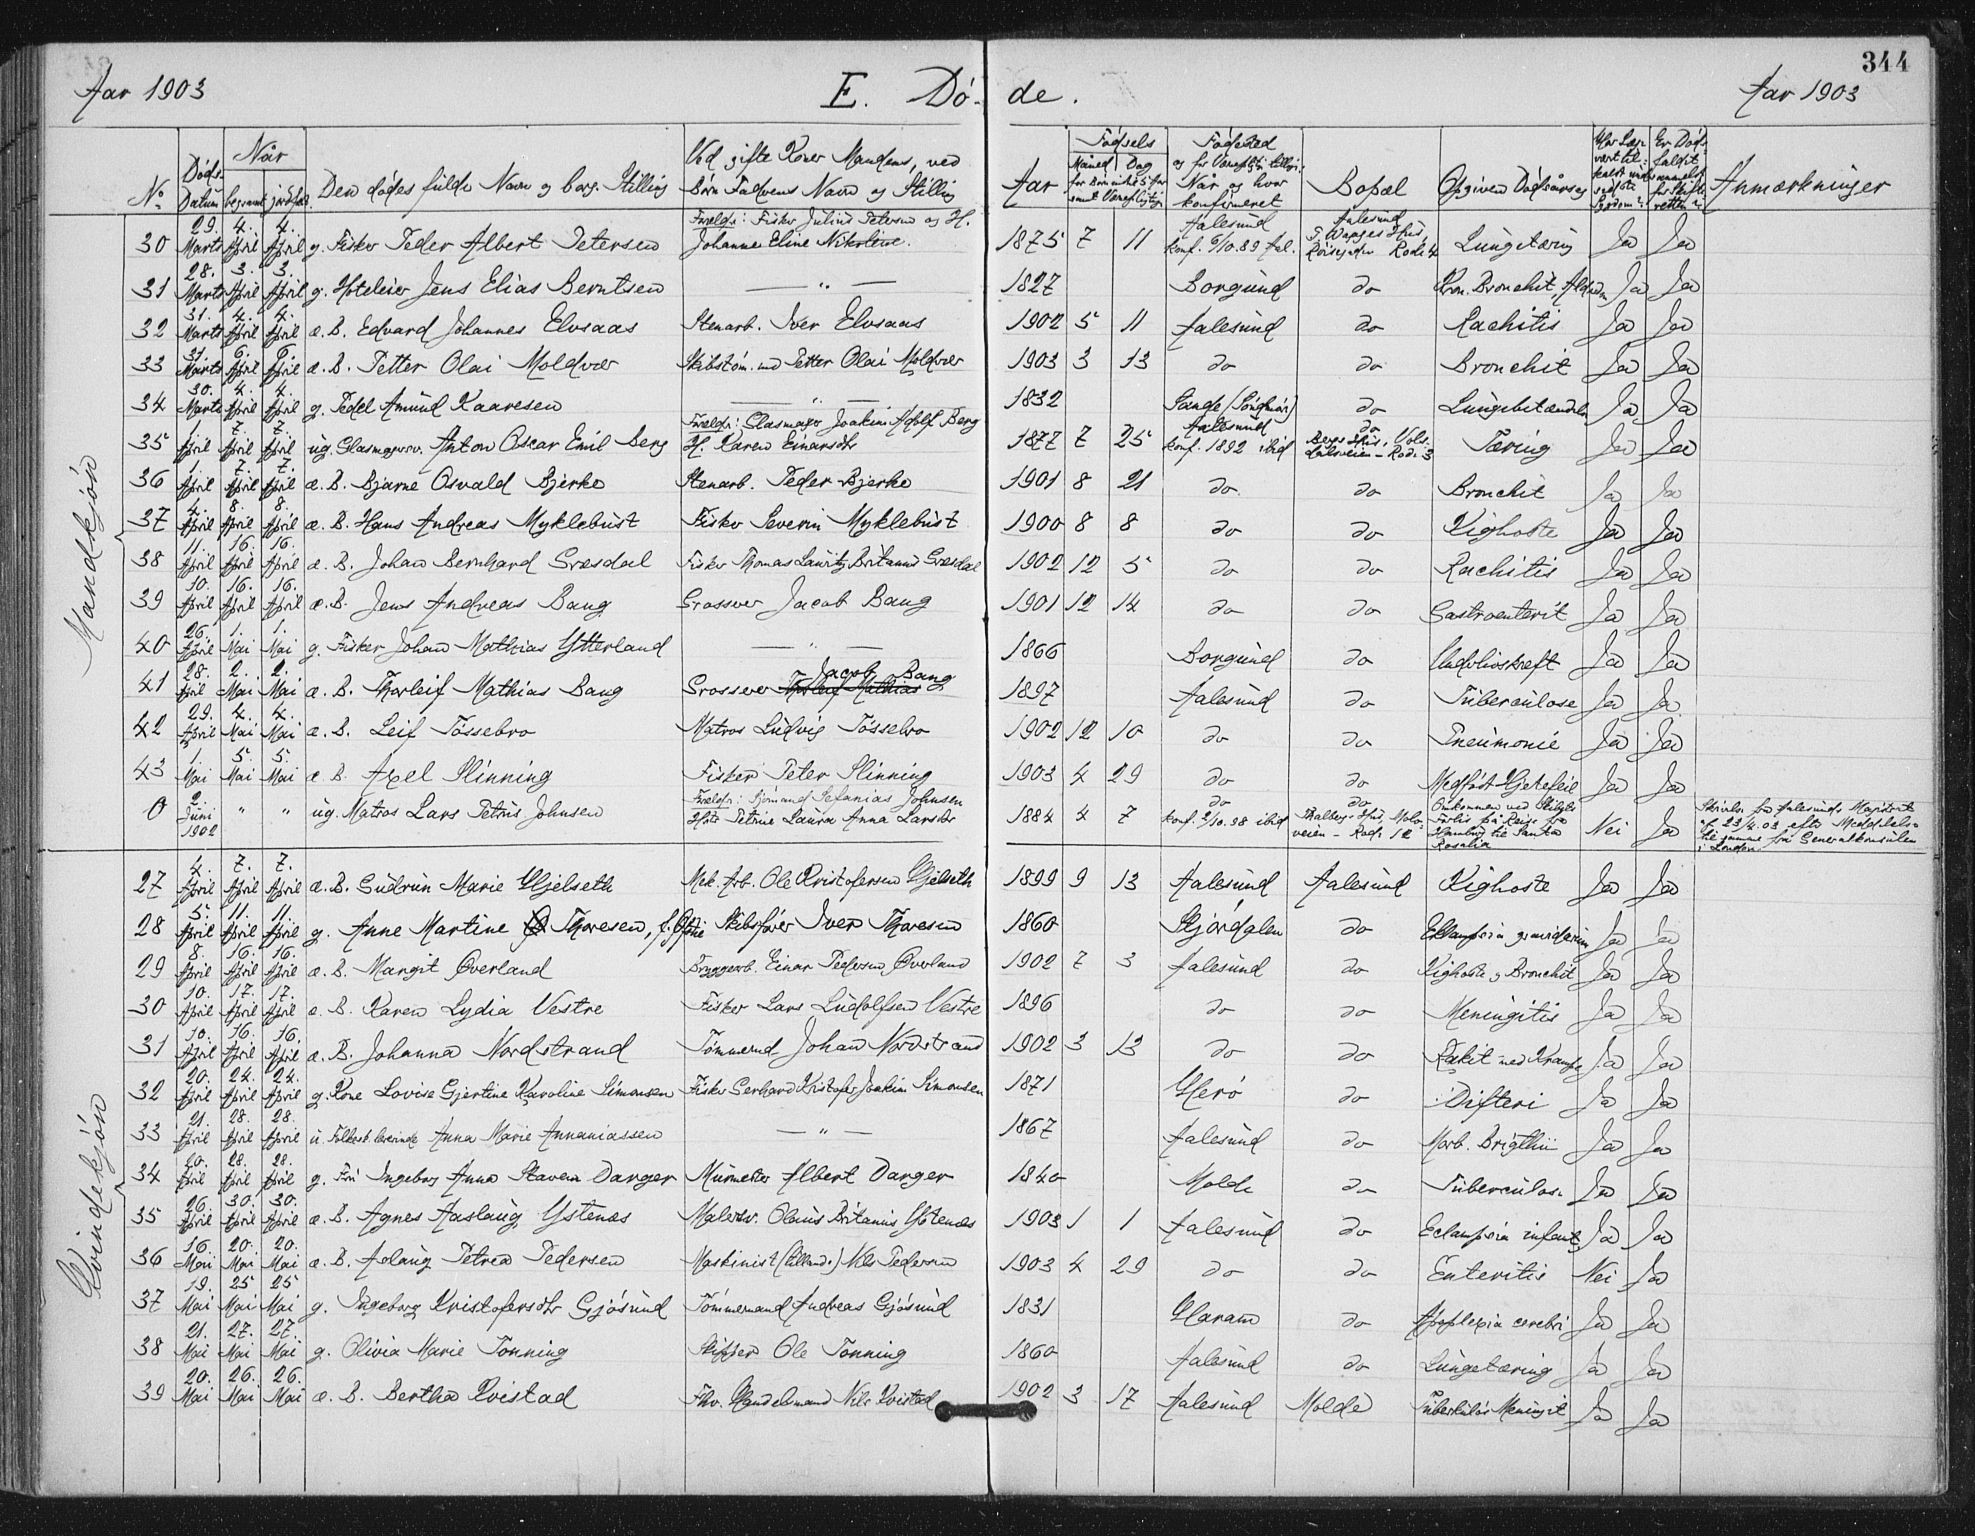 344
Aar 1903 E. Dö- de. Aar 1903
No. Döds Datum Når begravet jordfæst. Den dödes fulde Navn og borg. Stilling Ved gifte Koner Mandens, ved Börn Faderens Navn og Stilling Aar Födsels Måned Dag Födested Når og hvor konfirmeret Bopæl Opgiven Dödsårsag Anmærkninger
Mandkjön
30 29. Marts 4. April 4. April g. Fisker Peder Albert Petersen Forældr: Fisker Julius Petersen og H. Johanne Eline Nikoline. 1875 7 11 Aalesund konf. 6/10.89 Aal. Aalesund Hus, Rode 4 Lungetæring Ja Ja
31 28. Marts 3. April 3. April g. Hoteleier Jens Elias Berntsen — " — 1827 Borgund do Kron. Bronchit, Alderdom Ja Ja
32 31. Marts 4. April 4. April æ. B. Edvard Johannes Elvsaas Stenarb. Iver Elvsaas 1902 5 11 Aalesund do Rachitis Ja Ja
33 31. Marts 6. April 6. April æ. B. Petter Olai Moldvær Skibstöm.md Petter Olai Moldvær 1903 3 13 do do Bronchit Ja Ja
34 30. Marts 4. April 4. April g. Pedel Amund Kaaresen — " — 1832 Gande (Söndmör) do Lungebetændelse Ja Ja
35 1. April 7. April 7. April ug. Glasmagersv. Anton Oscar Emil Berg Forældr: Glasmager Joakim Adolf Berg H. Karen Einarsdtr 1877 7 25 Aalesund konf. 1892 ibid do Bergs Hus, Vols-dalsveien – Rode 3 Tæring Ja Ja
36 1. April 7. April 7. April æ. B. Bjarne Osvald Bjerke Stenarb. Peder Bjerke 1901 8 21 do. do Bronchit Ja Ja
37 4. April 8. April 8. April æ. B. Hans Andreas Myklebust Fisker Severin Myklebust 1900 8 8 do do Kighoste Ja Ja
38 11. April 16. April 16. April æ. B. Johan Bernhard Græsdal Fisker Thomas Lauritz Britanus Græsdal 1902 12 5 do do Rachitis Ja Ja
39 10. April 16. April 16. April æ. B. Jens Andreas Bang Grosserer Jacob Bang 1901 12 14 do do Gastroenterit Ja Ja
40 26. April 1. Mai 1. Mai g. Fisker Johan Mathias Ytterland — " — 1866 Borgund do Underlivskreft Ja Ja
41 28. April 2. Mai 2. Mai æ. B. Thorleif Mathias Bang Grosserer Thorleif Mathias Jacob Bang 1897 Aalesund do Tuberculose Ja Ja
42 29. April 4. Mai 4. Mai æ. B. Leif Tössebro Matros Ludvig Tössebro 1902 12 10 do do Pneumonie Ja Ja
43 1. Mai 5. Mai 5. Mai æ. B. Axel Slinning Fisker Peter Slinning 1903 4 29 do do Medfödt Hjertefeil Ja Ja
0 2. Juni 1902 " " ug. Matros Lars Petrus Johnsen Forældr: Sjömand Sefanias Johnsen Hstr Petrine Laura Anna Larsdtr 1884 4 7 do konf. 2/10.98 ibid do Thalbergs Hus, Molo-veien – Rode 12 Omkommen ved Skibets Forlis på Reise fra Hamburg til Santa Rosalia Nei Ja Skrivelse fra Aalesunds Magistrat af 23/4.03 efter Meddelelse til samme fra Generalkonsulen i London
Kvindekjön
27 4. April 7. April 7. April æ. B. Gudrun Marie Hjelseth Mek. Arb. Ole Kristofersen Hjelseth 1899 9 13 Aalesund Aalesund Kighoste Ja Ja
28 5. April 11. April 11. April g. Anne Martine Thoresen, f. Skibsförer Iver Thoresen 1860 Stjördalen do Eklampsia gravidarum Ja Ja
29 8. April 16. April 16. April æ. B. Margit Överland Bryggearb. Einar Pedersen Överland 1902 7 3 Aalesund do Kighoste og Bronchit Ja Ja
30 10. April 17. April 17. April æ. B. Karen Lydia Vestre Fisker Lars Ludolfsen Vestre 1896 do do Meningitis Ja Ja
31 10. April 16. April 16. April æ. B. Johanna Nordstrand Tömmermd Johan Nordstrand 1902 3 13 do do Rakit med Krampe Ja Ja
32 20. April 24. April 24. April g. Kone Lovise Gjertine Karoline Simonsen Fisker Gerhard Kristofer Joakim Simonsen 1871 Herö do Difteri Ja Ja
33 21. April 28. April 28. April u. Folkesk.lærerinde Anna Marie Annaniassen — " — 1867 Aalesund do Morb. Brigthii Ja Ja
34 20. April 28. April 28. April g. Fru Ingeborg Anna Stavem Danger Murmester Albert Danger 1840 Molde do Tuberculose Ja Ja
35 26. April 30. April 30. April æ. B. Agnes Aaslaug Ystenæs Malersv. Olaus Britanus Ystenæs 1903 1 1 Aalesund do Eclampsia infant. Ja Ja
36 16. Mai 20. Mai 20. Mai æ. B. Aslaug Petrea Pedersen Maskinist Nils Pedersen 1903 4 29 do do Enteritis Nei Ja
37 19. Mai 25 Mai 25 Mai g. Ingeborg Kristofersdtr Gjösund Tömmermand Andreas Gjösund 1831 Haram do Apoplexia cerebri Ja Ja
38 21. Mai 27. Mai 27. Mai g. Olivia Marie Tönning Skipper Ole Tönning 1860 Aalesund do Lungetæring Ja Ja
39 20. Mai 26. Mai 26. Mai æ. B. Bertha Kvistad Fhv. Handelsmand Nils Kvistad 1902 3 17 Aalesund Molde Tuberkulös Meningit Ja Ja